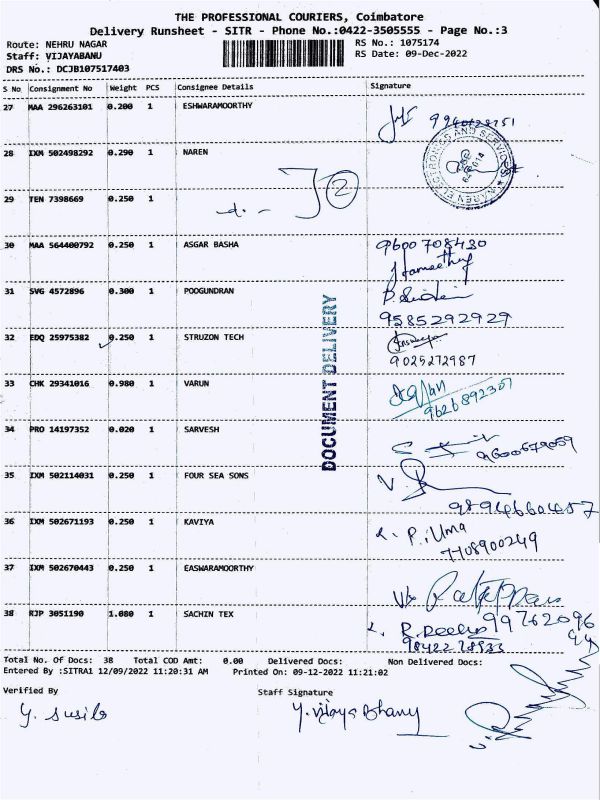 THE PROFESSIONAL COURIERS, Coimbatore
Delivery Runsheet - SITR - Phone No.:0422-3505555 - Page No.:3
Route: NEHRU NAGAR RS No.: 1075174
Staff: VIJAYABANU RS Date: 09-Dec-2022
DRS No.: DCJB107517403
S No Consignment No Weight PCS Consignee Details Signature
27 MAA 296263101 0.200 1 ESHWARAMOORTHY
28 IXM 502498292 0.290 1 NAREN
NAREN ELECTRONICS AND SERVICES
29 TEN 7398669 0.250 1
2
30 MAA 564400792 0.250 1 ASGAR BASHA 9600 708430
31 SVG 4572896 0.300 1 POOGUNDRAN
9585292929
32 EDQ 25975382 0.250 1 STRUZON TECH
9025272987
33 CHK 29341016 0.980 1 VARUN
9626892307
34 PRO 14197352 0.020 1 SARVESH
9600679059
35 IXM 502114031 0.250 1 FOUR SEA SONS
9894660457
36 IXM 502671193 0.250 1 KAVIYA P. Uma
7708900249
37 IXM 502670443 0.250 1 EASWARAMOORTHY
38 RJP 3051190 1.080 1 SACHIN TEX
99762096
DOCUMENT DELIVERY
Total No. Of Docs: 38 Total COD Amt: 0.00 Delivered Docs: Non Delivered Docs:
Entered By :SITRA1 12/09/2022 11:20:31 AM Printed On: 09-12-2022 11:21:02
Verified By Staff Signature
Y. Susila Y. Vijaya Bhanu